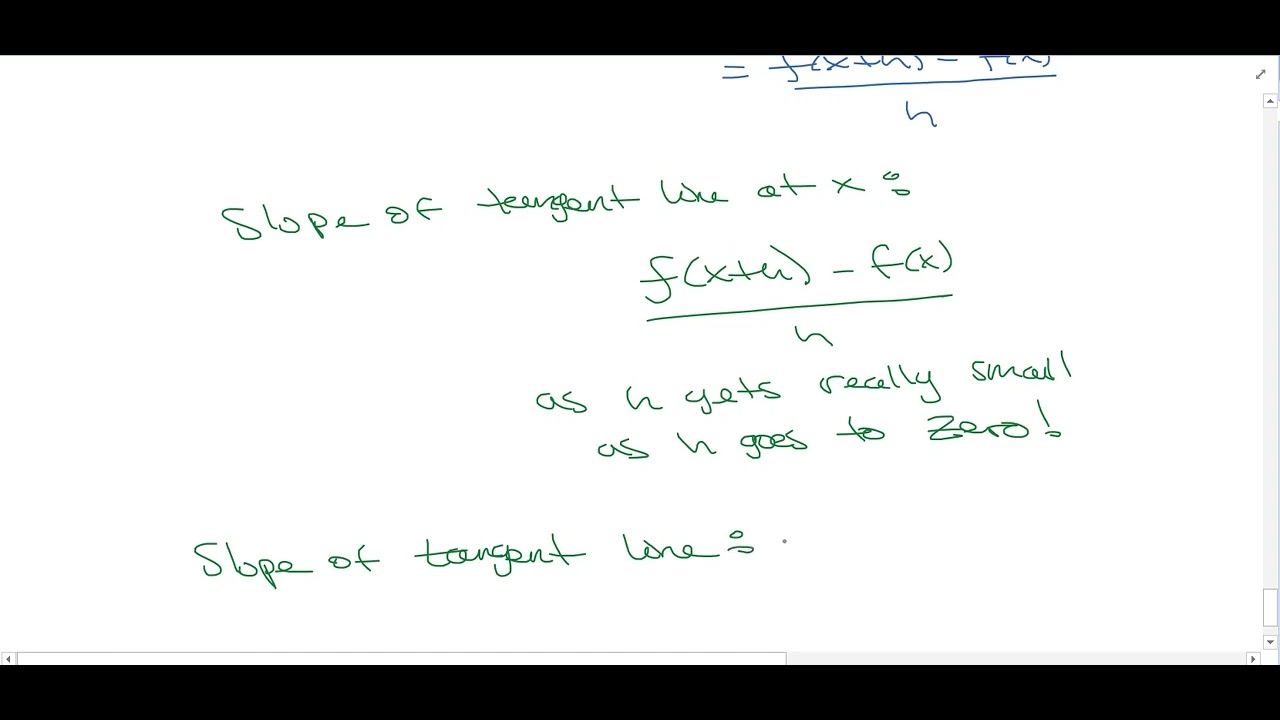 = f(x+h) - f(x)
h
Slope of tangent line at x:
f(x+h) - f(x)
h
as h gets really small
as h goes to zero!
Slope of tangent line: